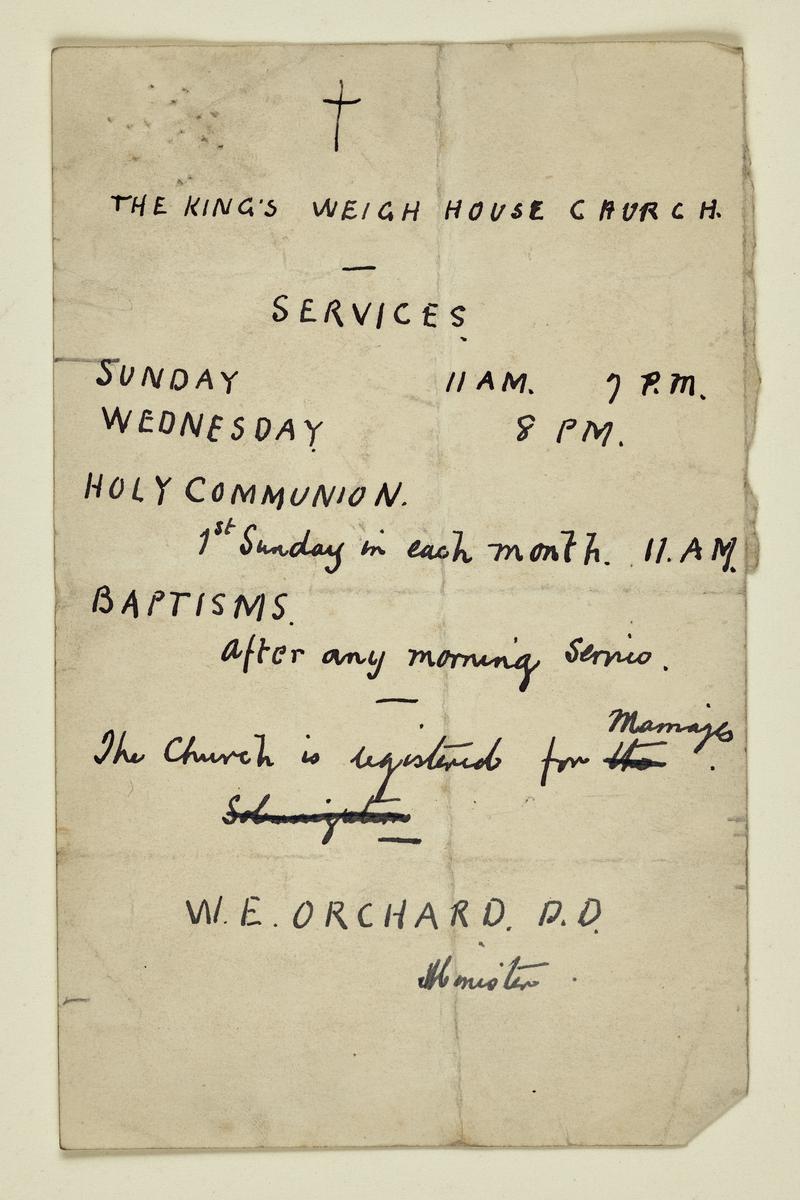 THE KING'S WEIGH HOUSE CHURCH.
SERVICES
SUNDAY 11 AM. 7 P.M.
WEDNESDAY 8 PM.
HOLY COMMUNION.
1st Sunday in each month. 11. AM.
BAPTISMS.
After any morning Service.
Marriages
The Church is registered for the .
Solemnization
W. E. ORCHARD. D.D.
Minister.